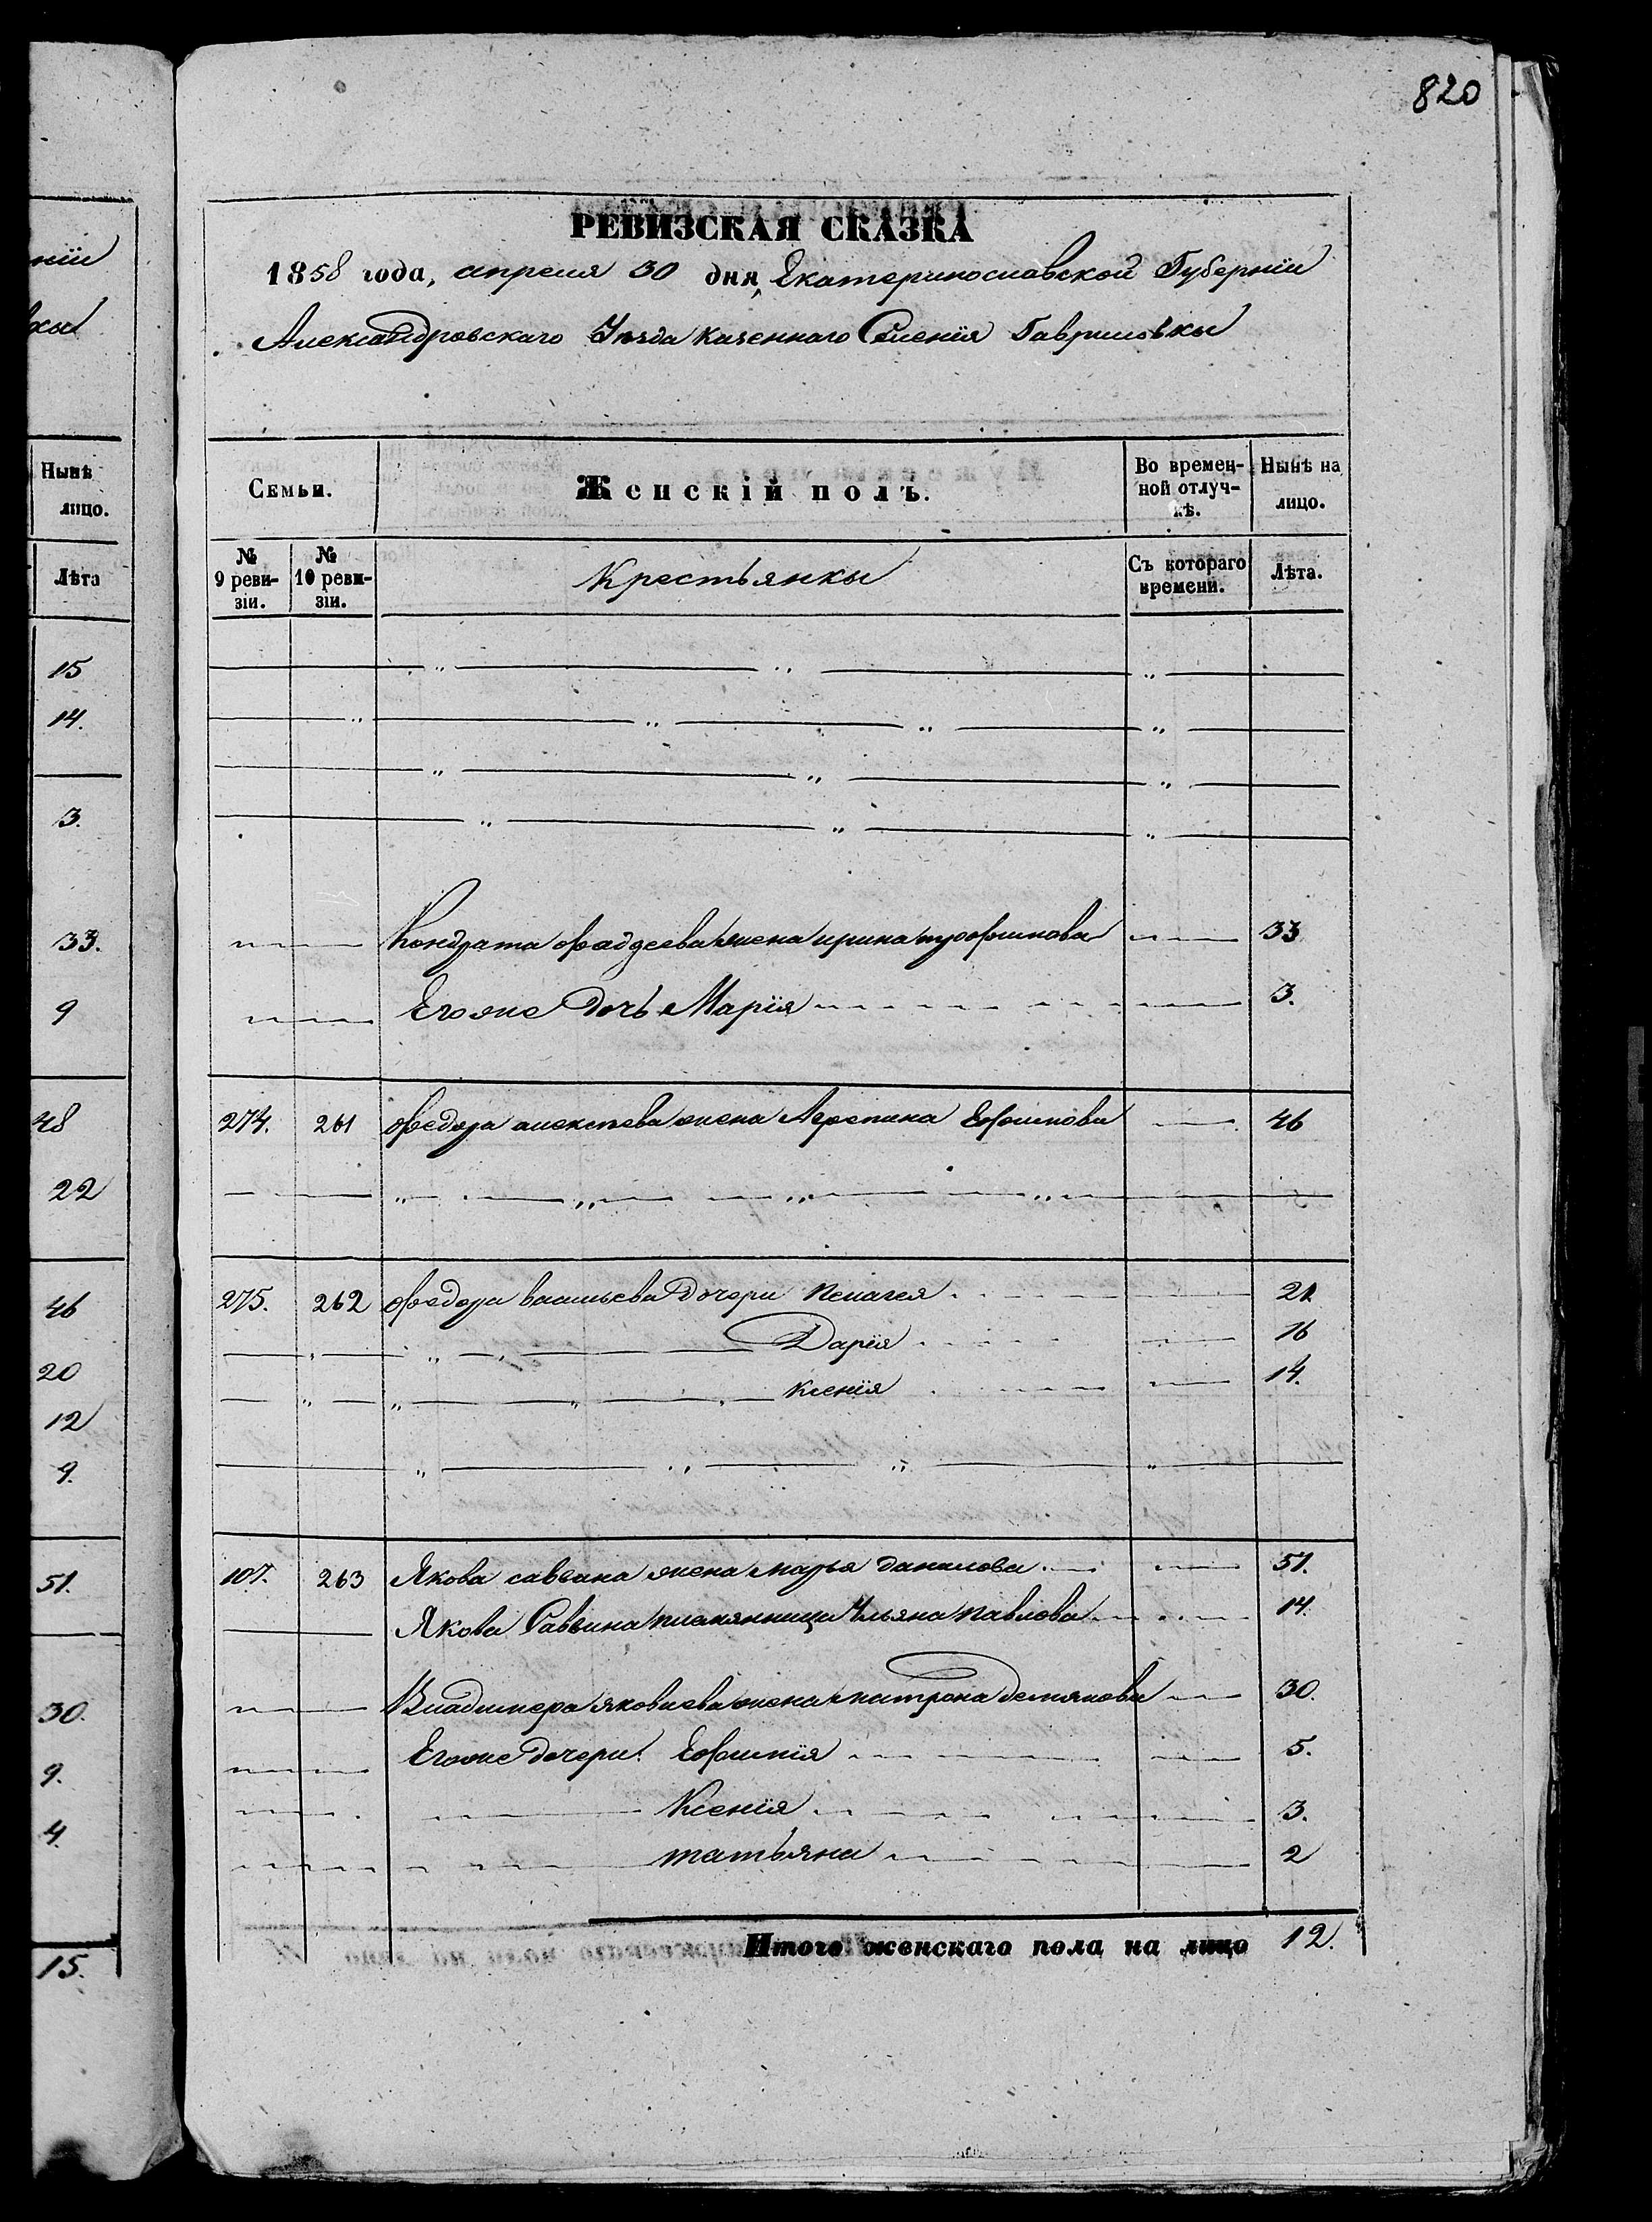 820
нiи
вки
Нынѣ
лицо.
Лѣта
15
14.
3.
33.
9
48
22
46
20
12
9.
51.
30.
9.
4.
15.
РЕВИЗСКАЯ СКАЗКА
1858 года, апреля 30 дня, Екатеринославской Губернiи
Александровскаго Уѣзда казеннаго Селенiя Гавриловки
Семьи. Женскiй полъ. Во времен-ной отлуч-кѣ. Нынѣ на лицо.
№ 9 реви-зiи. № 10 реви-зiи. Крестьянки Съ котораго времени. Лѣта.
Кондрата фаддеева жена ирина трофимова 33
Егоже дочь Марiя 3.
274. 261 федора алексѣева жена Агрепина Ефимова 46
275. 262 федора васильева дочери Пелагея 21
Дарiя 16
ксенiя 14.
107. 263 Якова саввина жена марья данилова 51.
Якова Саввина племянница Ульяна павлова 14.
Владимера яковлева жена матрона демянова 30.
Егоже дочери Ефимiя 5.
Ксенiя 3.
татьяна 2
Итого женскаго пола на лицо 12.